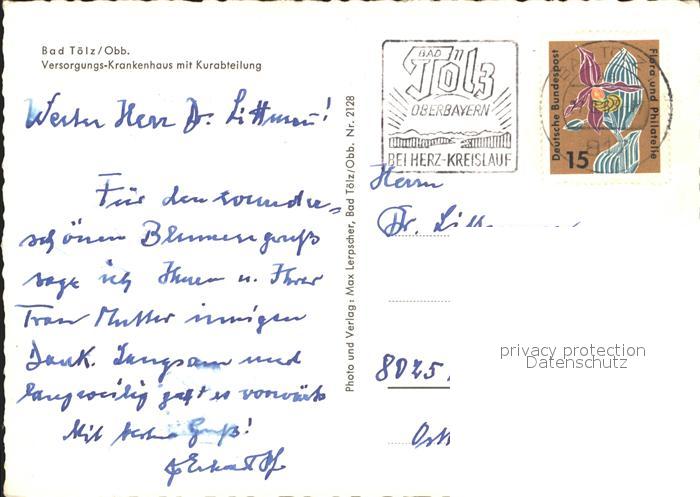 Bad Tölz/Obb.
Versorgungs-Krankenhaus mit Kurabteilung
Werter Herr Dr. Littman!
Für den wunder-
schönen Blumengruß
sage ich Ihnen u. Ihrer
Frau Mutter innigen
Dank. Langsam und
langweilig geht es vorwärts
Mit Gruß!
Photo und Verlag: Max Lerpscher, Bad Tölz/Obb. Nr. 2128
BAD
Tölz
OBERBAYERN
BEI HERZ-KREISLAUF
Deutsche Bundespost
Flora und Philatelie
15
Herrn
Dr.
8025
privacy protection
Datenschutz